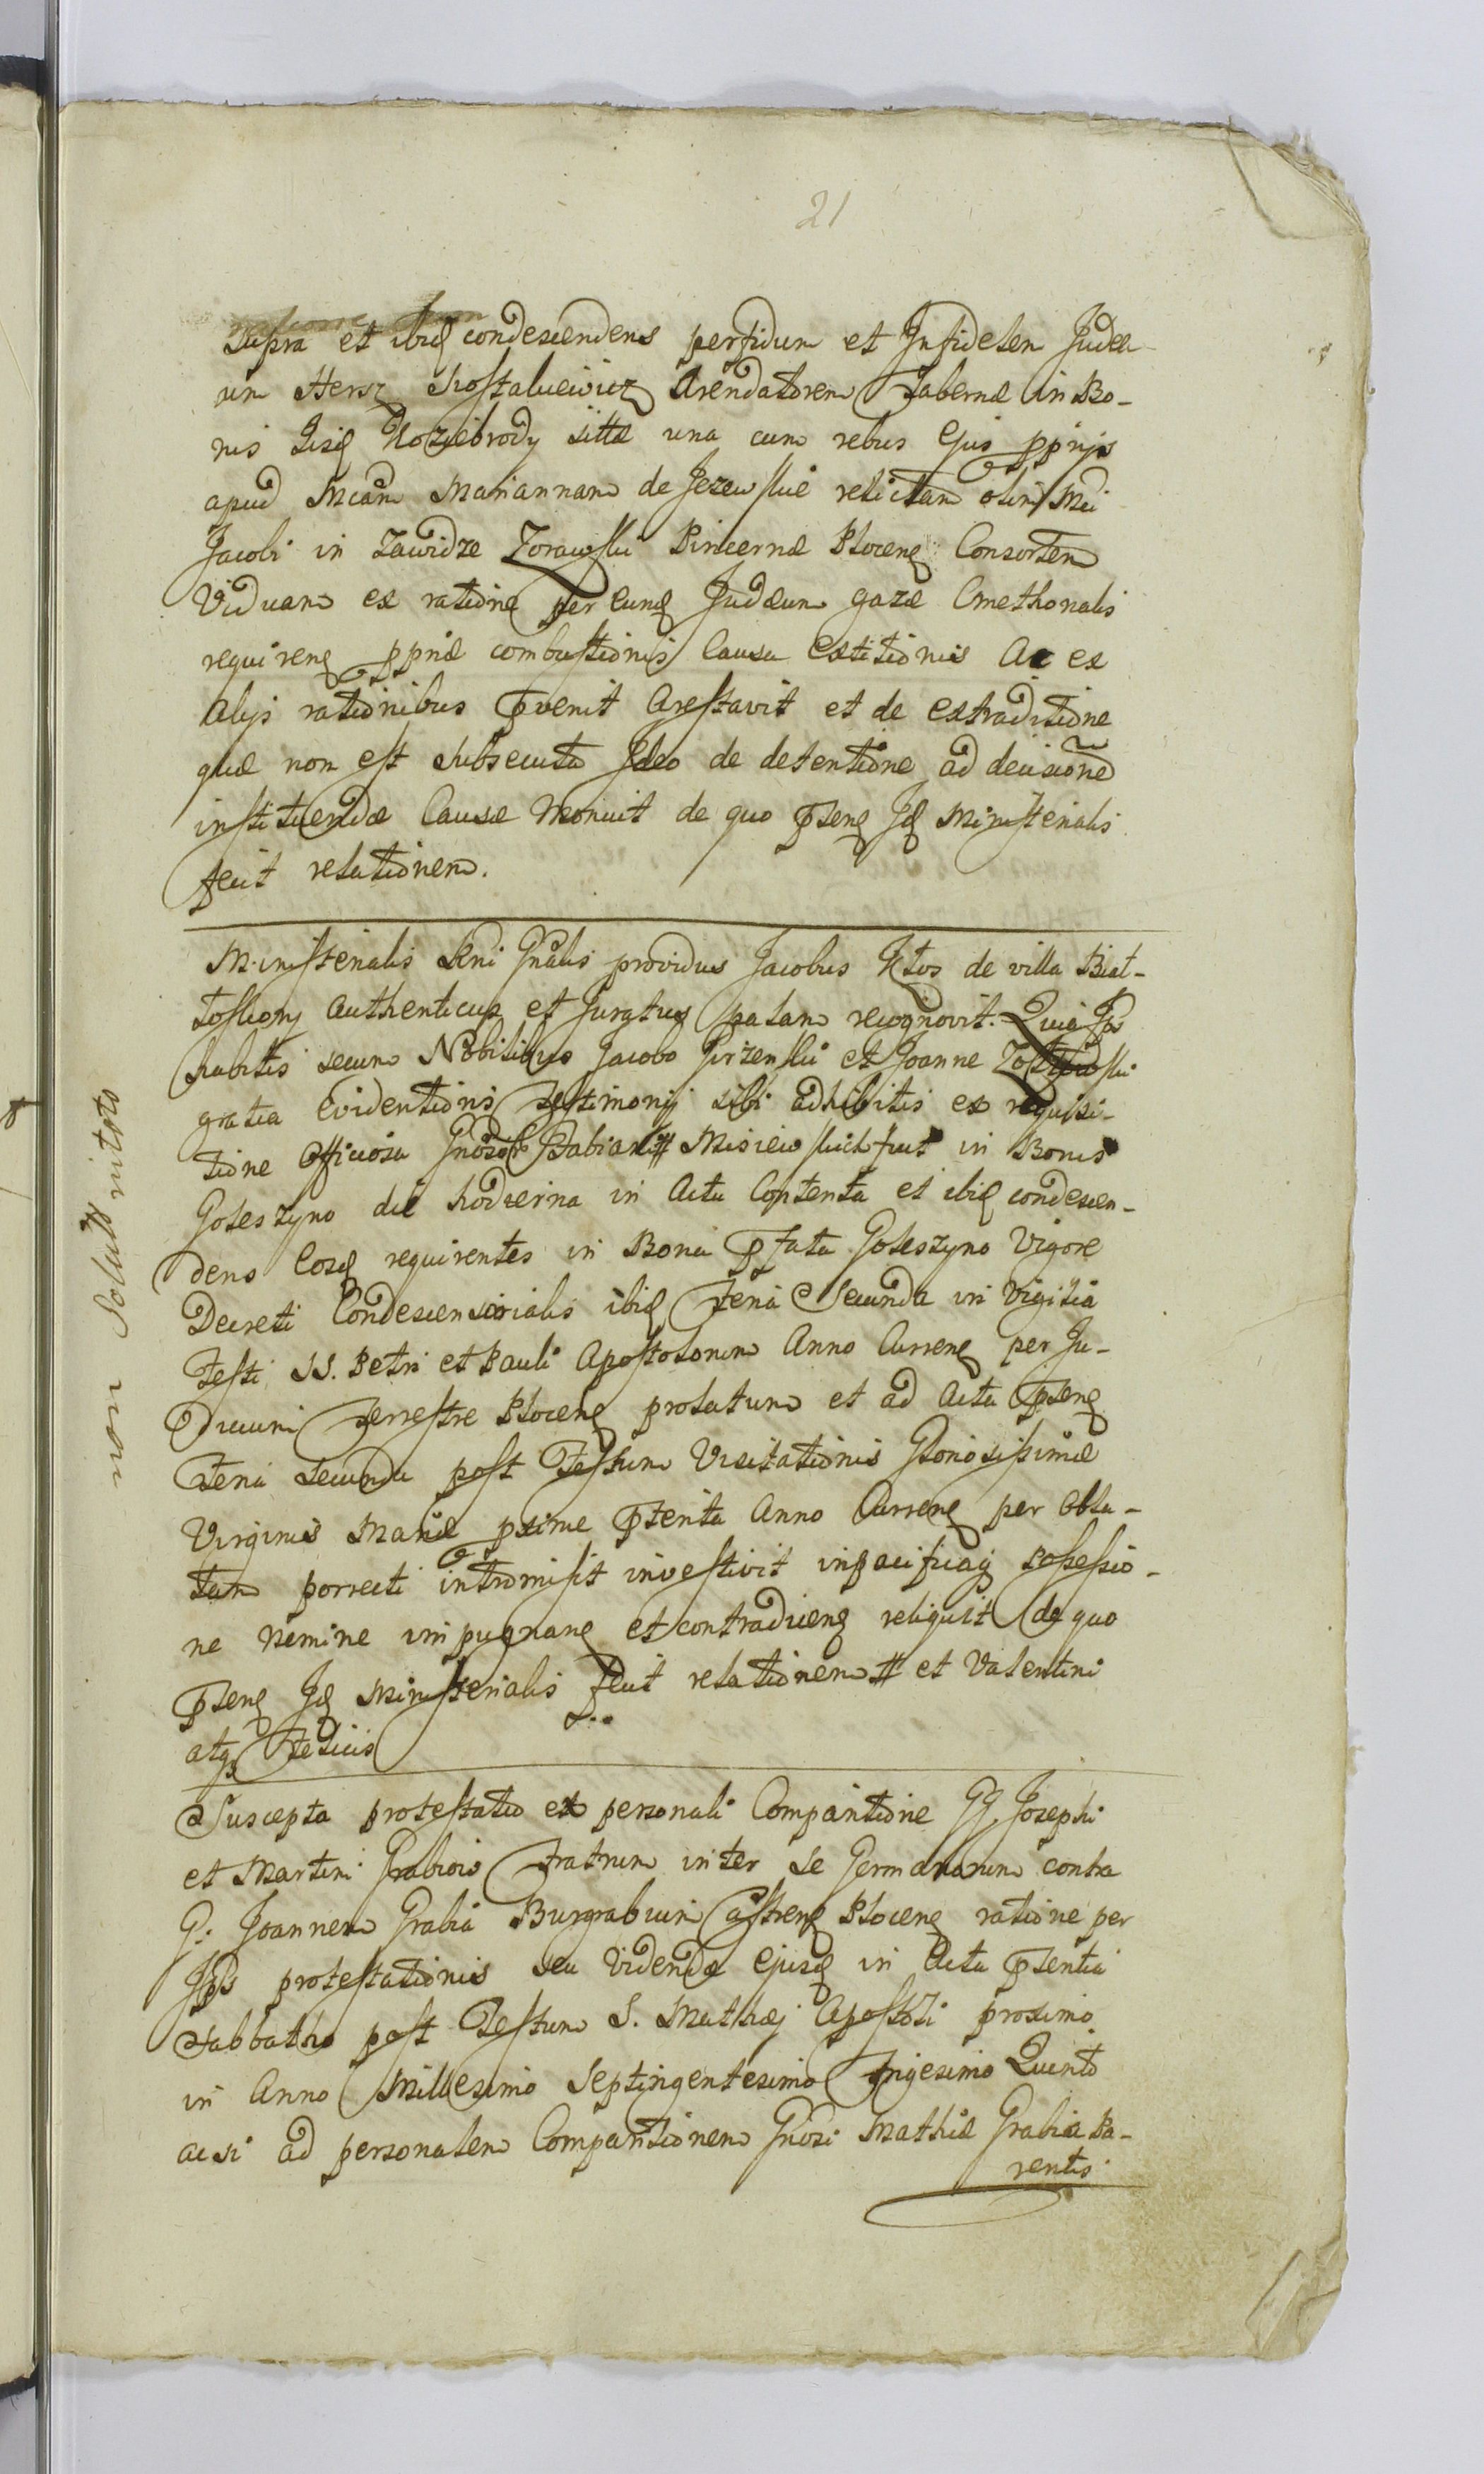 21
Supra et ibiq condescendens perfidum et Infidelem Judæ-
um Hersz Arendatorem Tabernæ in Bo-
nis Iisq Koziebrody sittæ una cum rebus Ejus pprijs
apud Mcam Mariannam de Jezewskie relictam olim Mci
Jacobi in Zawidze Zorawski Pincernæ Plocenq Consortem
Viduam ex ratione per Eunq Judæum gazæ Cmethonalis
requirenq ppriæ combustionis Causa Extitionis Ac ex
Alijs rationibus pvenit Arestavit et de extraditione
quæ non est subsecuta Ideo de detentione ad decisionem
instituendæ Causæ Monuit de quo psenq Jq Ministerialis
fecit relationem.
Ministerialis Rni Gnalis providus Jacobus Ktos de villa Biat-
toskory Authenticus et Juratus palam recognovit. Quia Ips
habitis secum Nobilibus Jacobo et Joanne
gratia Evidentioris testimonij sibi adhibitis ex requisi-
tione Officiosa Gnosor Fabiani # Misiewskich fuit in Bonis
Goleszyno die hodierna in Actu Contenta et ibiq condescen-
dens Eosq requirentes in Bona pfata Goleszyno Vigore
Decreti Condescensorialis ibiq Feria Secunda in Vigilia
Festi SS. Petri et Pauli Apostolorum Anno Currenq per Ju-
dicium Terrestre Plocenq prolatum et ad Acta psenq
Feria Secunda post Festum Visitationis Gloriosissimæ
Virginis Mariæ pxime pterita Anno Currenq per Obla-
tam porrecti intromisit investivit inpacificaq possessio-
ne Nemine impugnanq et contradicenq reliquit de quo
psenq Jq Ministerialis fecit relationem # et Valentini
atq Felicis
Suscepta protestatio ex personali Comparitione GG Josephi
et Martini Grabiow Fratrum inter se Germanorum contra
G. Joannem Grabia Burgrabium Castrenq Plocenq ratione per
Ips protestationis seu Videndæ Ejusq in Acta psentia
Sabbatho post Festum S. Mathæj Apostoli proximo
in Anno Millesimo Septingentesimo Trigesimo Quinto
acsi ad personalem Comparitionem Gnosi Mathiæ Grabia Pa-
rentis
non Solut intoto